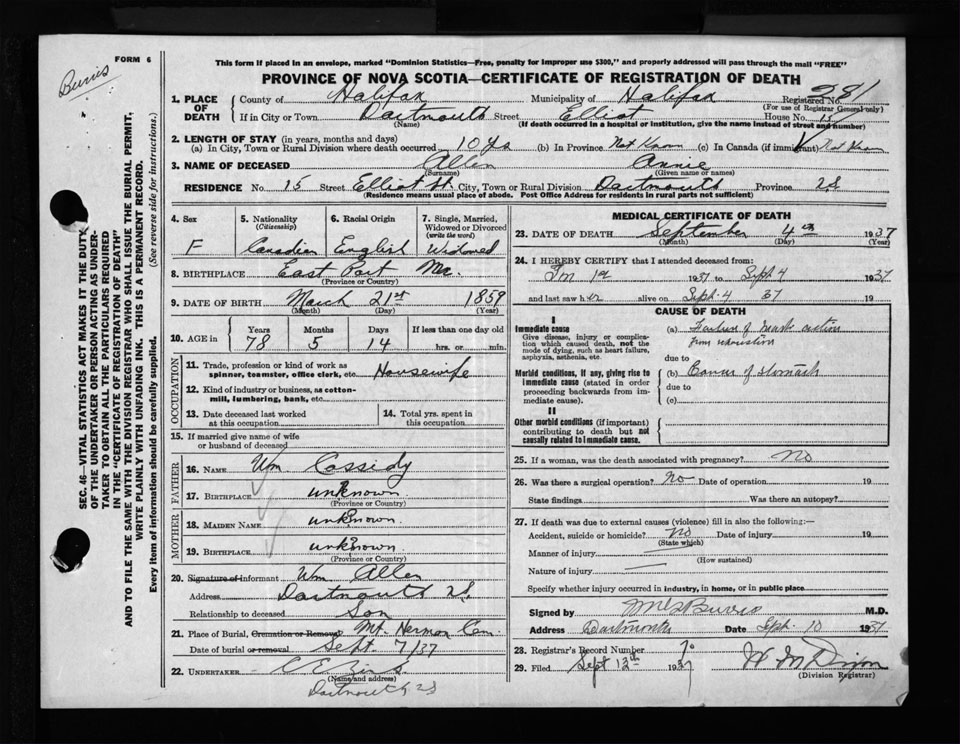 FORM 6
Burris
This form if placed in an envelope, marked "Dominion Statistics—Free, penalty for improper use $300," and properly addressed will pass through the mail "FREE"
PROVINCE OF NOVA SCOTIA—CERTIFICATE OF REGISTRATION OF DEATH
1. PLACE OF DEATH
County of Halifax Municipality of Halifax Registered No. 281
(For use of Registrar General only)
If in City or Town Dartmouth Street Elliot House No. 15
(Name) (If death occurred in a hospital or institution, give the name instead of street and number)
2. LENGTH OF STAY (in years, months and days)
(a) In City, Town or Rural Division where death occurred 10 ys (b) In Province Not Known (c) In Canada (if immigrant) Not Known
3. NAME OF DECEASED Allen Annie
(Surname) (Given name or names)
RESIDENCE No. 15 Street Elliot St. City, Town or Rural Division Dartmouth Province NS
(Residence means usual place of abode. Post Office Address for residents in rural parts not sufficient)
SEC. 46—VITAL STATISTICS ACT MAKES IT THE DUTY
OF THE UNDERTAKER OR PERSON ACTING AS UNDER-
TAKER TO OBTAIN ALL THE PARTICULARS REQUIRED
IN THE "CERTIFICATE OF REGISTRATION OF DEATH"
AND TO FILE THE SAME WITH THE DIVISION REGISTRAR WHO SHALL ISSUE THE BURIAL PERMIT,
WRITE PLAINLY WITH UNFADING INK. THIS IS A PERMANENT RECORD.
Every item of information should be carefully supplied. (See reverse side for instructions.)
4. Sex
F
5. Nationality
(Citizenship)
Canadian
6. Racial Origin
English
7. Single, Married, Widowed or Divorced
(write the word)
Widowed
8. BIRTHPLACE East Port Me.
(Province or Country)
9. DATE OF BIRTH March 21st 1859
(Month) (Day) (Year)
10. AGE in
Years Months Days If less than one day old
78 5 14 hrs. or min.
OCCUPATION
11. Trade, profession or kind of work as
spinner, teamster, office clerk, etc. Housewife
12. Kind of industry or business, as cotton-
mill, lumbering, bank, etc.
13. Date deceased last worked
at this occupation
14. Total yrs. spent in
this occupation
15. If married give name of wife
or husband of deceased
FATHER
16. NAME Wm Cassidy
17. BIRTHPLACE unknown
MOTHER
18. MAIDEN NAME unknown
19. BIRTHPLACE unknown
(Province or Country)
20. Signature of informant Wm Allen
Address Dartmouth NS
Relationship to deceased Son
21. Place of Burial, Cremation or Removal Mt. Hermon Cem
Date of burial or removal Sept. 7/37
22. UNDERTAKER
(Name and address)
Dartmouth NS
MEDICAL CERTIFICATE OF DEATH
23. DATE OF DEATH September 4th 1937
(Month) (Day) (Year)
24. I HEREBY CERTIFY that I attended deceased from:
1st 1937 to Sept 4 1937
and last saw her alive on Sept. 4 37 19
CAUSE OF DEATH
I
Immediate cause
Give disease, injury or compli­cation which caused death, not the
mode of dying, such as heart failure,
asphyxia, asthenia, etc.
(a) Failure of heart action
from exhaustion
due to
Morbid conditions, if any, giving rise to
immediate cause (stated in order
proceeding backwards from im-
mediate cause).
(b) Cancer of stomach
due to
(c)
II
Other morbid conditions (if important)
contributing to death but not
causally related to immediate cause.
25. If a woman, was the death associated with pregnancy? No
26. Was there a surgical operation? No Date of operation 19
State findings Was there an autopsy?
27. If death was due to external causes (violence) fill in also the following:—
Accident, suicide or homicide? No Date of injury 19
(State which)
Manner of injury
(How sustained)
Nature of injury
Specify whether injury occurred in industry, in home, or in public place
Signed by Burris M.D.
Address Dartmouth Date Sept. 10 1937
28. Registrar's Record Number
29. Filed Sept 13th 1937
(Division Registrar)